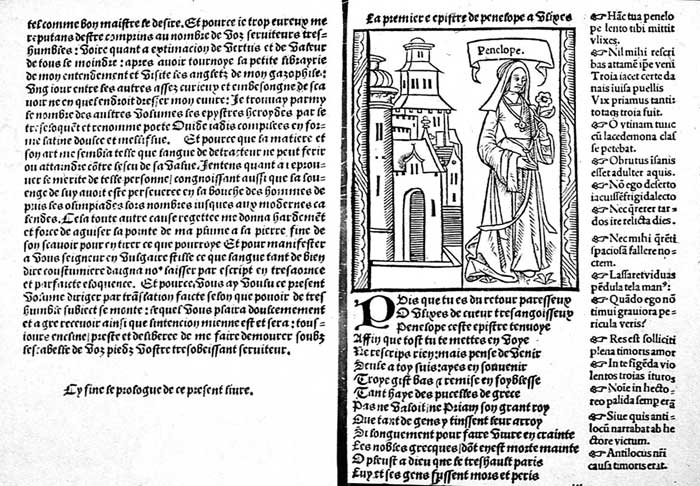 tel comme bon maistre le desire. Et pource ie trop eureux me
reputans destre comprins au nombre de voz seruiteurs tres-
humbles: Voire quant a extimacion de Vertus et de Valeur
de tous le moindre: apres auoir tournoye la petite librayrie
de mon entendement et Visite les angletz de mon gazophile:
Ung iour entre les autres assez curieux et embesongne de sca
uoir ne en quel endroit dresser mon euure: Je trouuay parmy
le nombre des aultres Volumes les epystres heroydes par le
treseloquét et renomme poete Ouide iadis compilees en for-
me latine doulce et meliflue. Et pource que la matiere et
son art me sembla telle que langue de detracteur ne peut ferir
ou attaindre côtre le seu de sa Value. Jentens quant a reprou-
uer le merite de telle personne: congnoissant aussi que la loue
enge de luy auoit este perseueree en la bouche des hommes de
puis les olimpiades lors nombres iusques aux modernes ca
lendes. Cela toute autre cause regettee me donna hardement
et force de aguiser la pointe de ma plume a la pierre fine de
son scauoir pour en tirer ce que pourroye Et pour manifester
a Vous seigneur en Vulgaire stille ce que langue tant de bien
dire coustumiere daigna nous laisser par escript en tresaornee
et parfaicte eloquence. Et pource, Vous ay Voulu ce present
Volume diriger par trâslation faicte selon que pouoir de tres
humble subiect se monte: lequel Vous plaira doulcement
et a gre receuoir ainsi que lintencion mienne est et sera: tous-
iours encline: preste et deliberee de me faire demourer soubz
les: abelle de Voz piedz Vostre tresobeissant seruiteur.
Cy fine le prologue de ce present liure.
La premiere epistre de penelope a Ulixes
Penelope.
Puis que tu es du retour paresseux
O Ulixes de cueur tresangoisseux
Penelope ceste epistre tenuoye
Affin que tost tu te mettes en Voye
Ne rescrips rien: mais pense de Venir
Seule a toy suis: ayes en souuenir
Troye gist bas a remise en foyblesse
Tant haye des pucelles de grece
Pas ne Valoit: ne Priam son grant roy
Que tant de gens y tinssent leur arroy
Si longuement pour faire Viure en crainte
Les nobles grecques: dôt en est mainte
O pleust a dieu que le treshault paris
Luy et ses gens fussent mors et peris
☞ Hãc tua penelo
pe lento tibi mittit
vlixes.
☞ Nil mihi rescri
bas attamẽ ipe veni
Troia iacet certe da
nais iuisa puellis
Vix priamus tanti:
totaqȝ troia fuit.
☞ O vtinam tunc
cũ lacedemona clas
se petebat.
☞ Obrutus isanis
esset adulter aquis.
☞ Nõ ego deserto
iacuissẽ frigida lecto
☞ Nec q̃rerer tar-
dos ire relicta dies.
☞ Nec mihi q̃rẽti
spaciosã fallere no-
ctem.
☞ Lassaret viduas
pẽdula tela man⁹:
☞ Quãdo ego nõ
timui grauiora pe-
ricula veris?
☞ Res est solliciti
plena timoris amor
☞ In te figẽda vio
lentos troias ituros
☞ Noie in hecto-
reo palida semp erã
☞ Siue quis anti-
locũ narrabat ab he
ctore victum.
☞ Antilocus nr̃i
causa timoris erat.